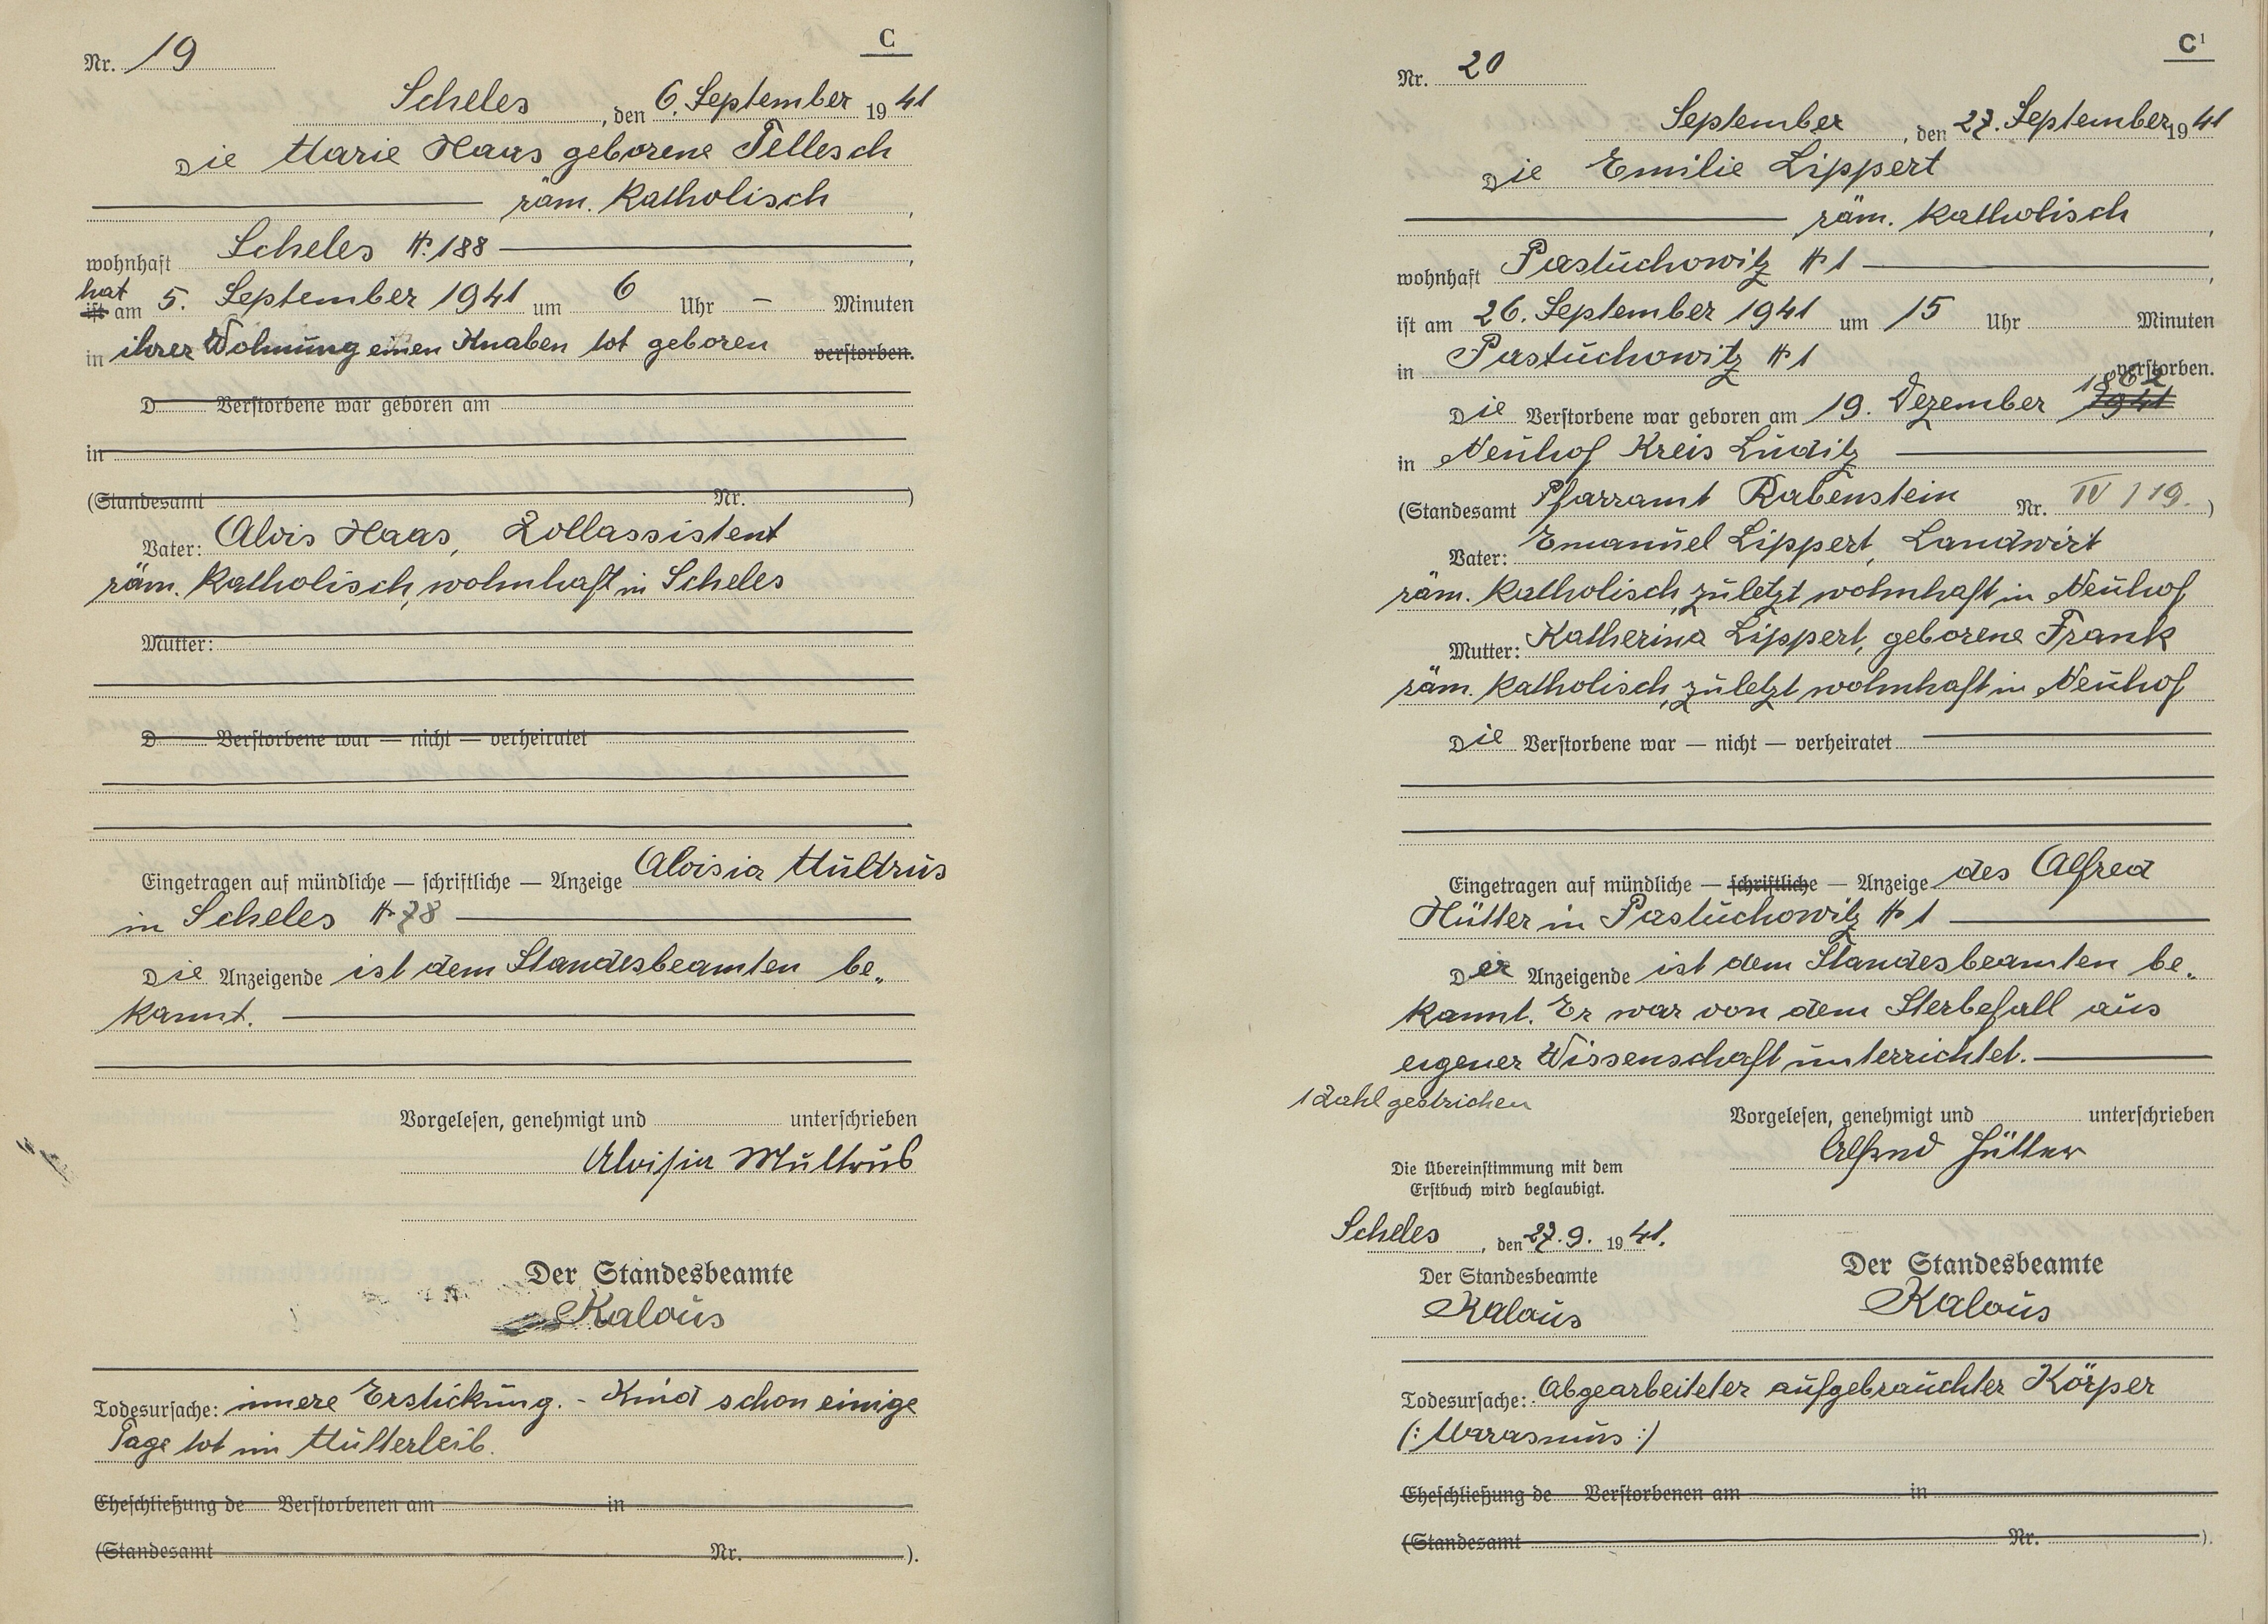 Nr. 19
C
Scheles, den 6. September 1941
Die Marie Haas geborene Tellesch
röm. Katholisch,
wohnhaft Scheles № 188,
hat
ist am 5. September 1941 um 6 Uhr – Minuten
in ihrer Wohnung einen Knaben tot geboren verstorben.
D Verstorbene war geboren am
in
(Standesamt Nr. )
Vater: Alois Haas, Zollassistent
röm. Katholisch, wohnhaft in Scheles
Mutter:
D Verstorbene war — nicht — verheiratet
Eingetragen auf mündliche — schriftliche — Anzeige Aloisia Multrus
in Scheles № 78
Die Anzeigende ist dem Standesbeamten be„
kannt.
Vorgelesen, genehmigt und unterschrieben
Aloisia Multrus
Der Standesbeamte
Kalous
Todesursache: innere Erstickung. - Kind schon einige
Tage tot im Mutterleib.
Eheschließung de Verstorbenen am in
(Standesamt Nr. ).
C¹
Nr. 20
September, den 27. September 1941
Die Emilie Lippert
röm. Katholisch,
wohnhaft Pastuchowitz № 1,
ist am 26. September 1941 um 15 Uhr Minuten
in Pastuchowitz № 1 verstorben.
1862
Die Verstorbene war geboren am 19. Dezember 1941
in Neuhof Kreis Luditz
(Standesamt Pfarramt Rabenstein Nr. IV / 19. )
Vater: Emanuel Lippert, Landwirt
röm. Katholisch, zuletzt wohnhaft in Neuhof
Mutter: Katherina Lippert, geborene Frank
röm. Katholisch, zuletzt wohnhaft in Neuhof
Die Verstorbene war — nicht — verheiratet
Eingetragen auf mündliche — schriftliche — Anzeige des Alfred
Hütter in Pastuchowitz № 1
Der Anzeigende ist dem Standesbeamten be„
kannt. Er war von dem Sterbefall aus
eigener Wissenschaft unterrichtet.
1 Zahl gestrichen
Vorgelesen, genehmigt und unterschrieben
Alfred Hütter
Die Übereinstimmung mit dem
Erstbuch wird beglaubigt.
Scheles, den 27. 9. 1941.
Der Standesbeamte
Kalous
Der Standesbeamte
Kalous
Todesursache: Abgearbeiteter aufgebrauchter Körper
(: Marasmus :)
Eheschließung de Verstorbenen am in
(Standesamt Nr. ).